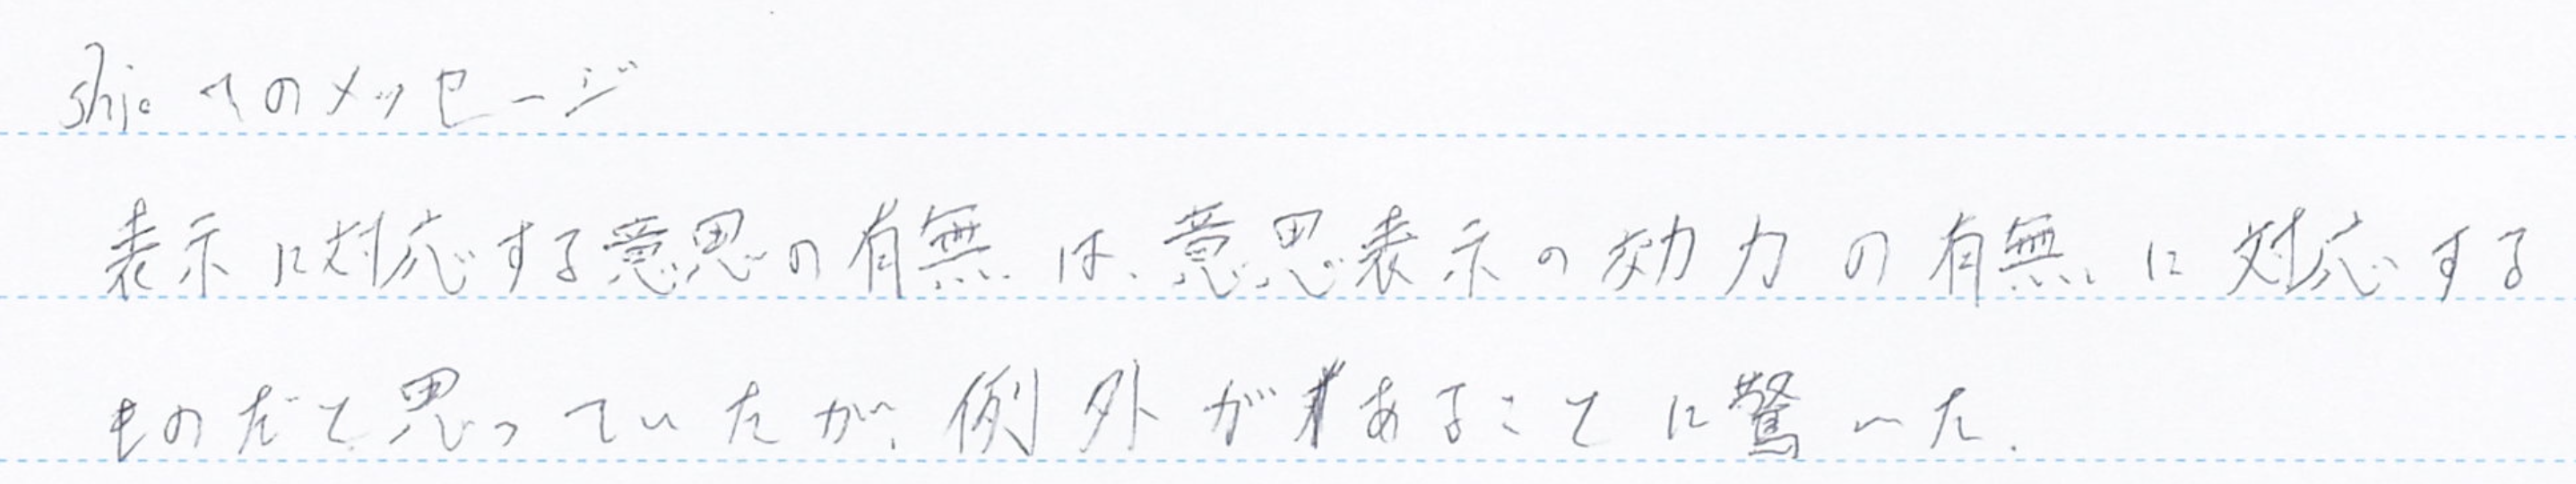 shioへのメッセージ
表示に対応する意思の有無は、意思表示の効力の有無に対応する
ものだと思っていたが、例外があることに驚いた。